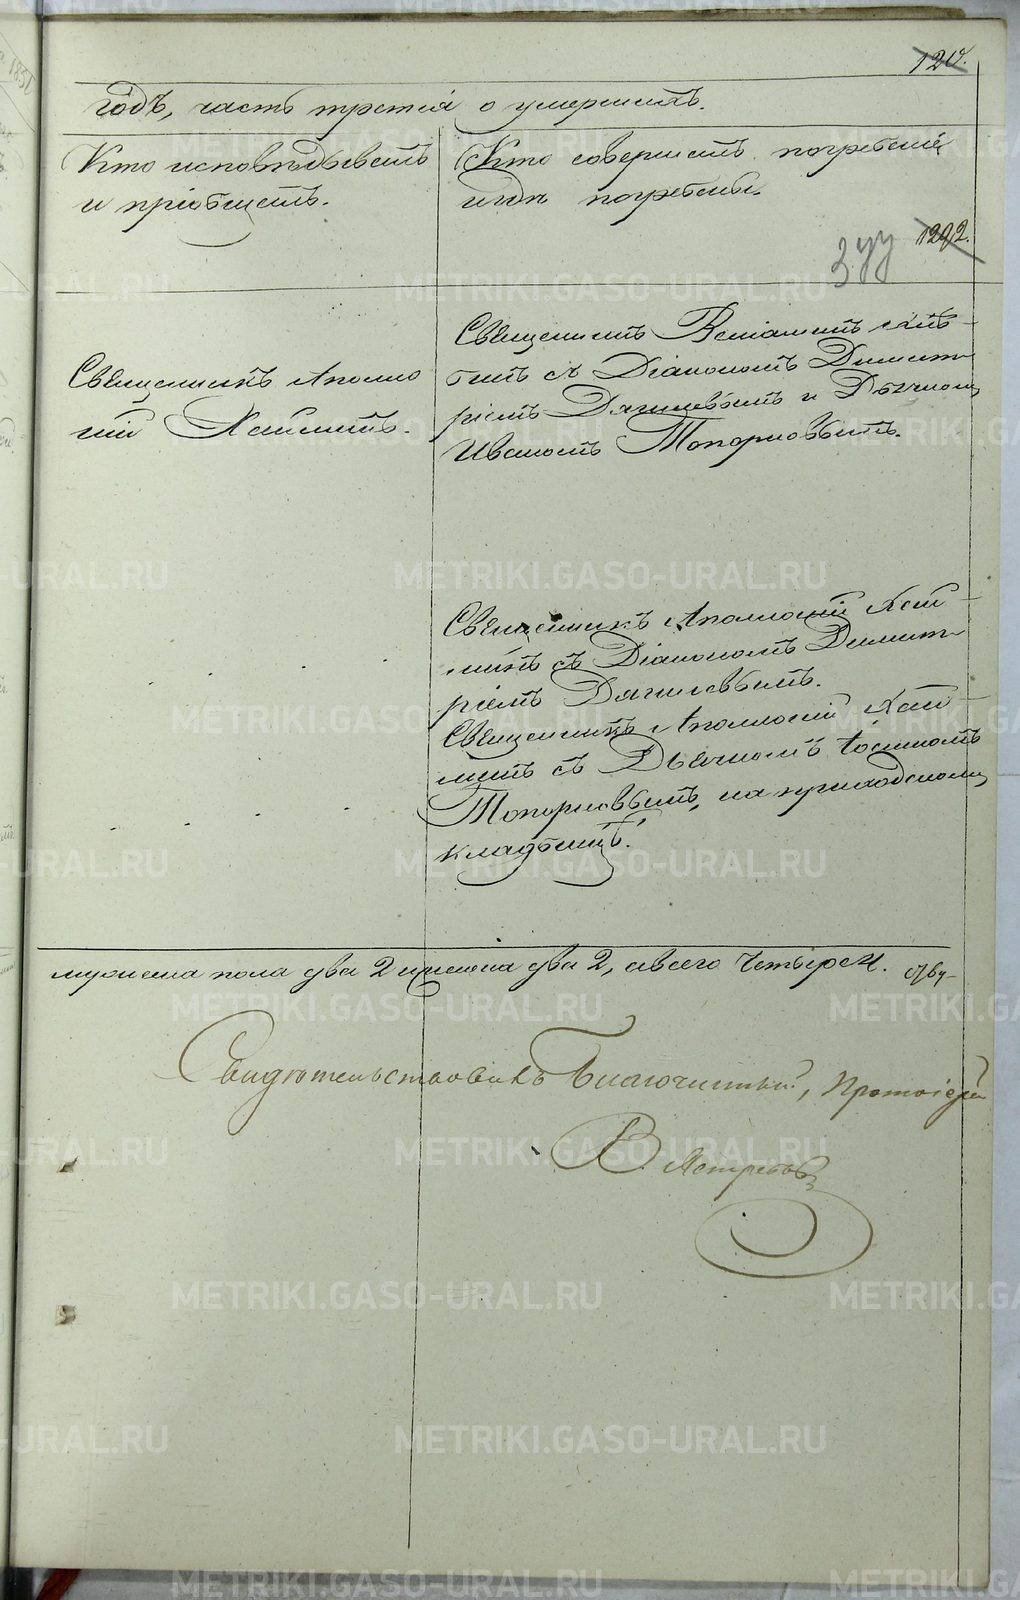 120.
годъ, часть третія о умершихъ.
Кто исповѣдывалъ
и пріобщалъ.
Кто совершалъ погребеніе
и гдѣ погребены.
1292.
Священникъ Аполло
ній
Священникъ Веніаминъ
съ Діакономъ Димит
ріемъ Дягилевымъ и Дьячкомъ
Иваномъ Топорковымъ.
Священникъ Аполлоній
съ Діакономъ Димит
ріемъ Дягилевымъ.
Священникъ Аполлоній
съ Дьячкомъ Іоанномъ
Топорковымъ, на приходскомъ
кладбищѣ.
мужеска пола два 2 и женска два 2, а всего четыре 4.
Свидѣтельствовалъ Благочинный, Протоіерей
В. Ястребовъ
METRIKI.GASO-URAL.RU